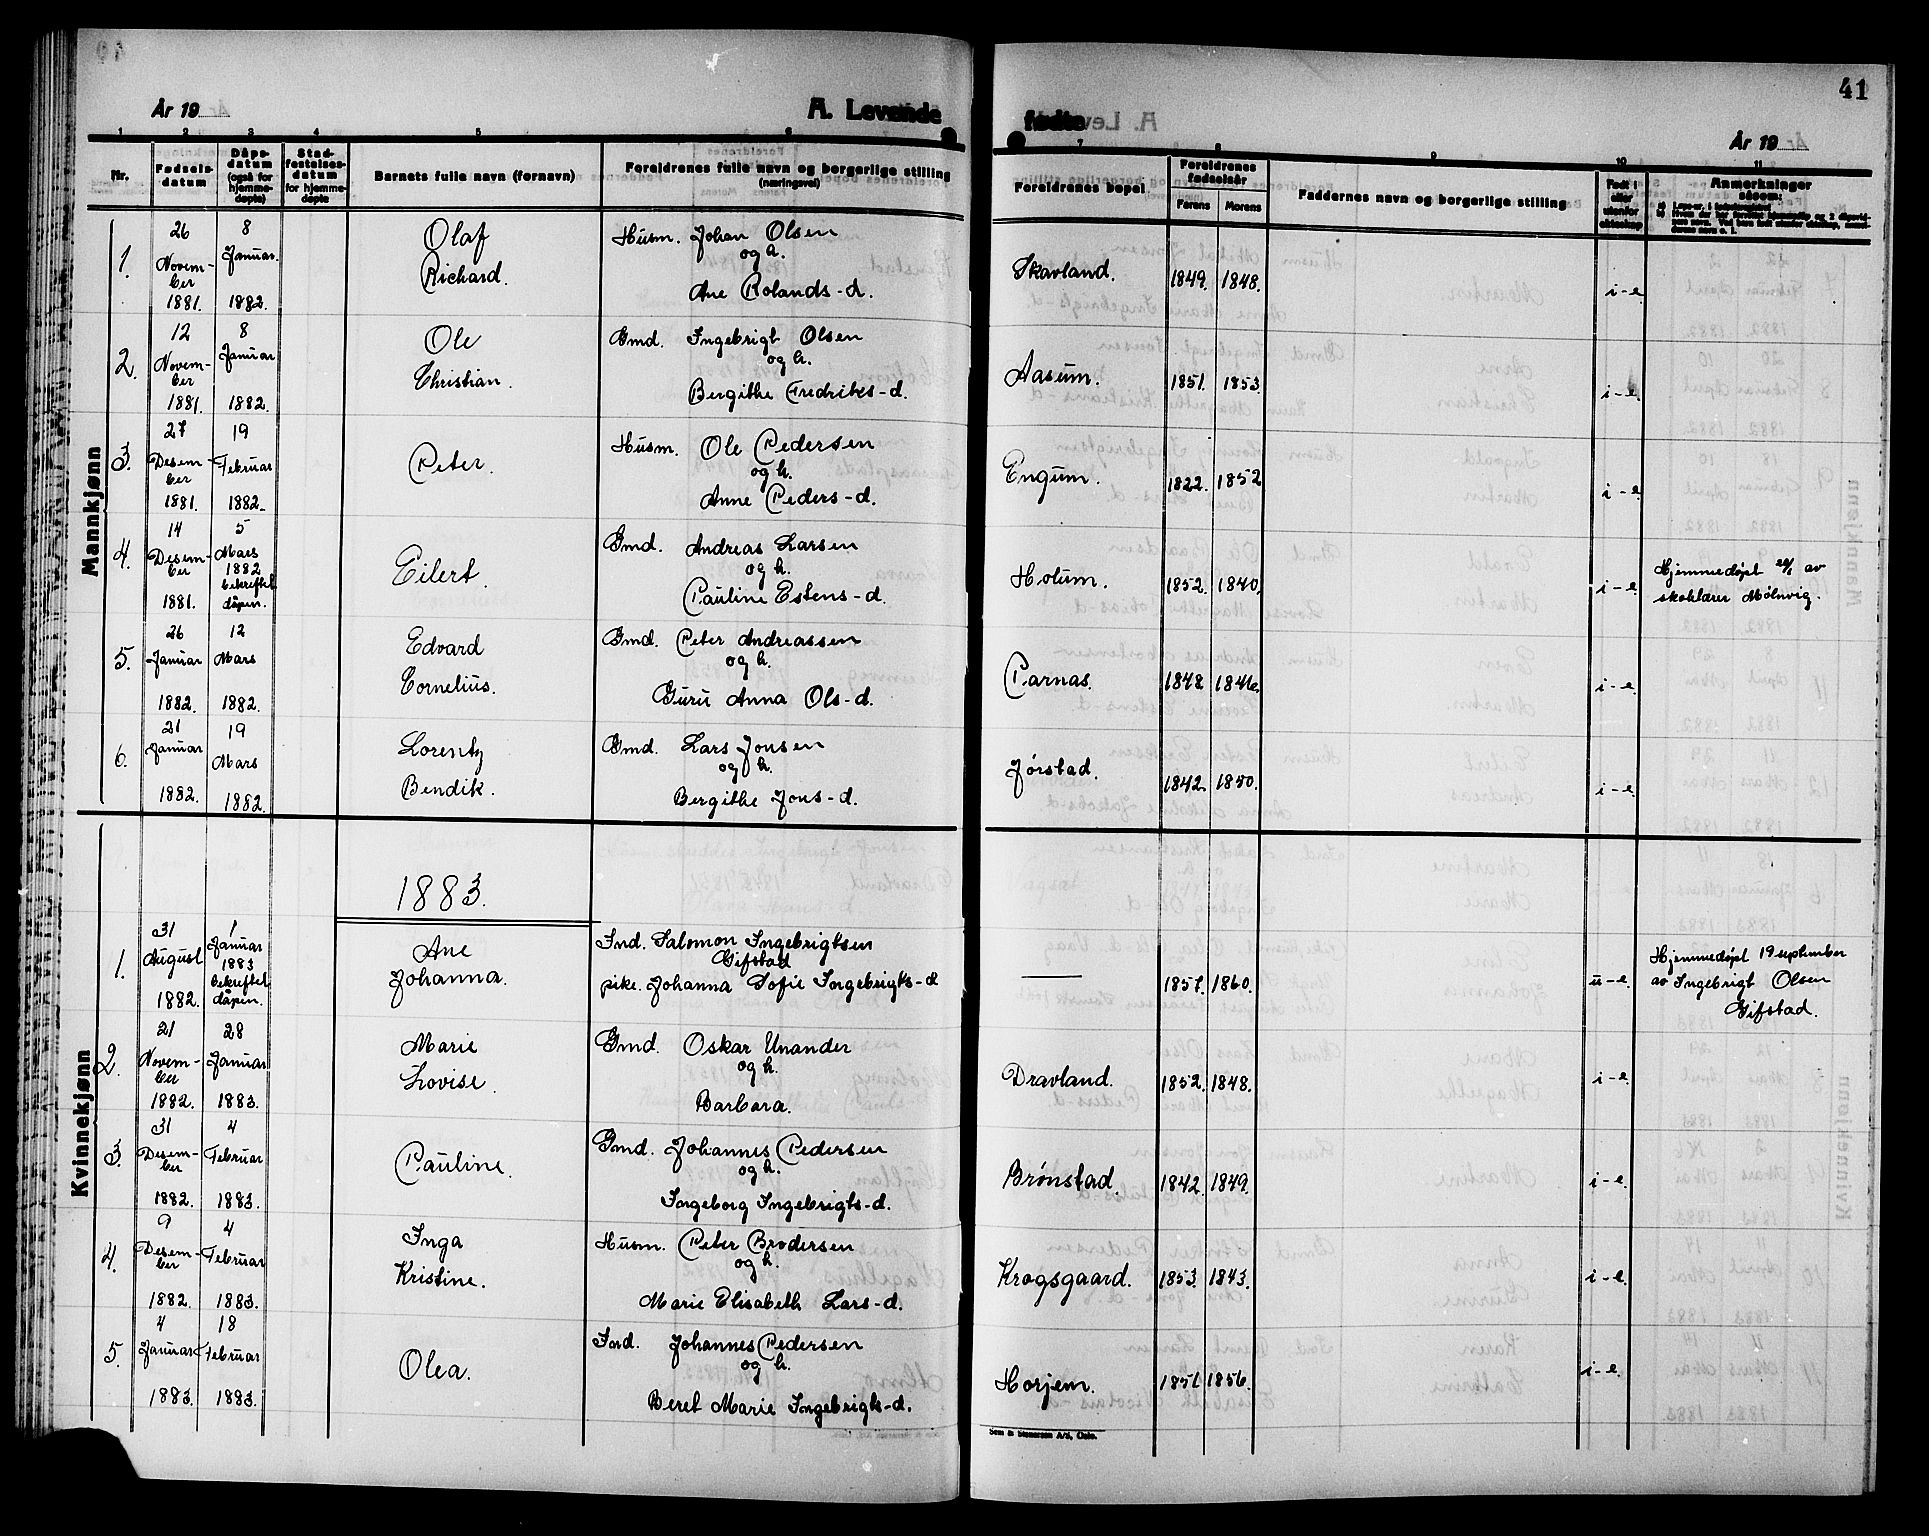 41
År 19
A. Levende
fødte
År 19
1 2 3 4 5 6 7 8 9 10 11
Nr.
Fødsels-
datum
Dåps-
datum
(også for
hjemme-
døpte)
Stad-
festelses-
datum
for hjemme-
døpte
Barnets fulle navn (fornavn)
Foreldrenes fulle navn og borgerlige stilling
(næringsvei)
Foreldrenes bopel
Foreldrenes
fødselsår
Farens Morens
Faddernes navn og borgerlige stilling
Født i
eller
utenfor
ekteskap
Anmerkninger
såsom:
Mannkjønn
1. 26 Novem-
ber
1881. 8 Januar.
1882. Olaf
Richard. Husm. Johan Olsen
og h.
Ane Rolands-d. Skavland. 1849. 1848. i-e.
2. 12 Novem-
ber
1881. 8 Januar
1882. Ole
Christian. Gmd. Ingebrigt Olsen
og h.
Bergithe Fredriks-d. Aasum. 1851. 1853. i-e.
3. 27 Desem-
ber
1881. 19 Februar
1882. Peter. Husm. Ole Pedersen
og h.
Anne Peders-d. Engum. 1822. 1852 i-e.
4. 14 Desem-
ber
1881. 5 Mars
1882
bekreftet
dåpen. Eilert. Gmd. Andreas Larsen
og h.
Pauline Estens-d. Hotum. 1852. 1840. i-e. Hjemmedøpt av
skolelærer Mølnvig.
5. 26 Januar
1882. 12 Mars
1882. Edvard
Cornelius. Gmd. Peter Andreassen
og h.
Guru Anna Ols-d. Parnas. 1848 1846. i-e.
6. 21 Januar
1882. 19 Mars
1882. Lorentz
Bendik. Gmd. Lars Jonsen
og h.
Bergithe Jons-d. Jørstad. 1842. 1840. i-e.
Kvinnekjønn
1883.
1. 31 August
1882. 1 Januar
1883
bekreftet
dåpen. Ane
Johanna. Ind. Salomon Ingebrigtsen
Gifstad
pike. Johanna Sofie Ingebrigts-d — 1857. 1860. u-e. Hjemmedøpt 19 september
av Ingebrigt Olsen
Gifstad.
2. 21 Novem-
ber
1882. 28 Januar
1883. Marie
Lovise. Gmd. Oskar Unander
og h.
Barbara. Dravland. 1852. 1848. i-e.
3. 31 Desem-
ber
1882. 4 Februar
1883. Pauline. Gmd. Johannes Pedersen
og h.
Ingeborg Ingebrigts-d. Brønstad. 1842. 1849. i-e.
4. 9 Desem-
ber
1882. 4 Februar
1883. Inga
Kristine. Husm. Peter Brodersen
og h.
Marie Elisabeth Lars-d. Krogsgaard. 1853. 1843. i-e.
5. 4 Januar
1883. 18 Februar
1883. Olea. Ind. Johannes Pedersen
og h.
Beret Marie Ingebrigts-d. Horjem. 1851 1856. i-e.
Sem & Stenersen A/S, Oslo.